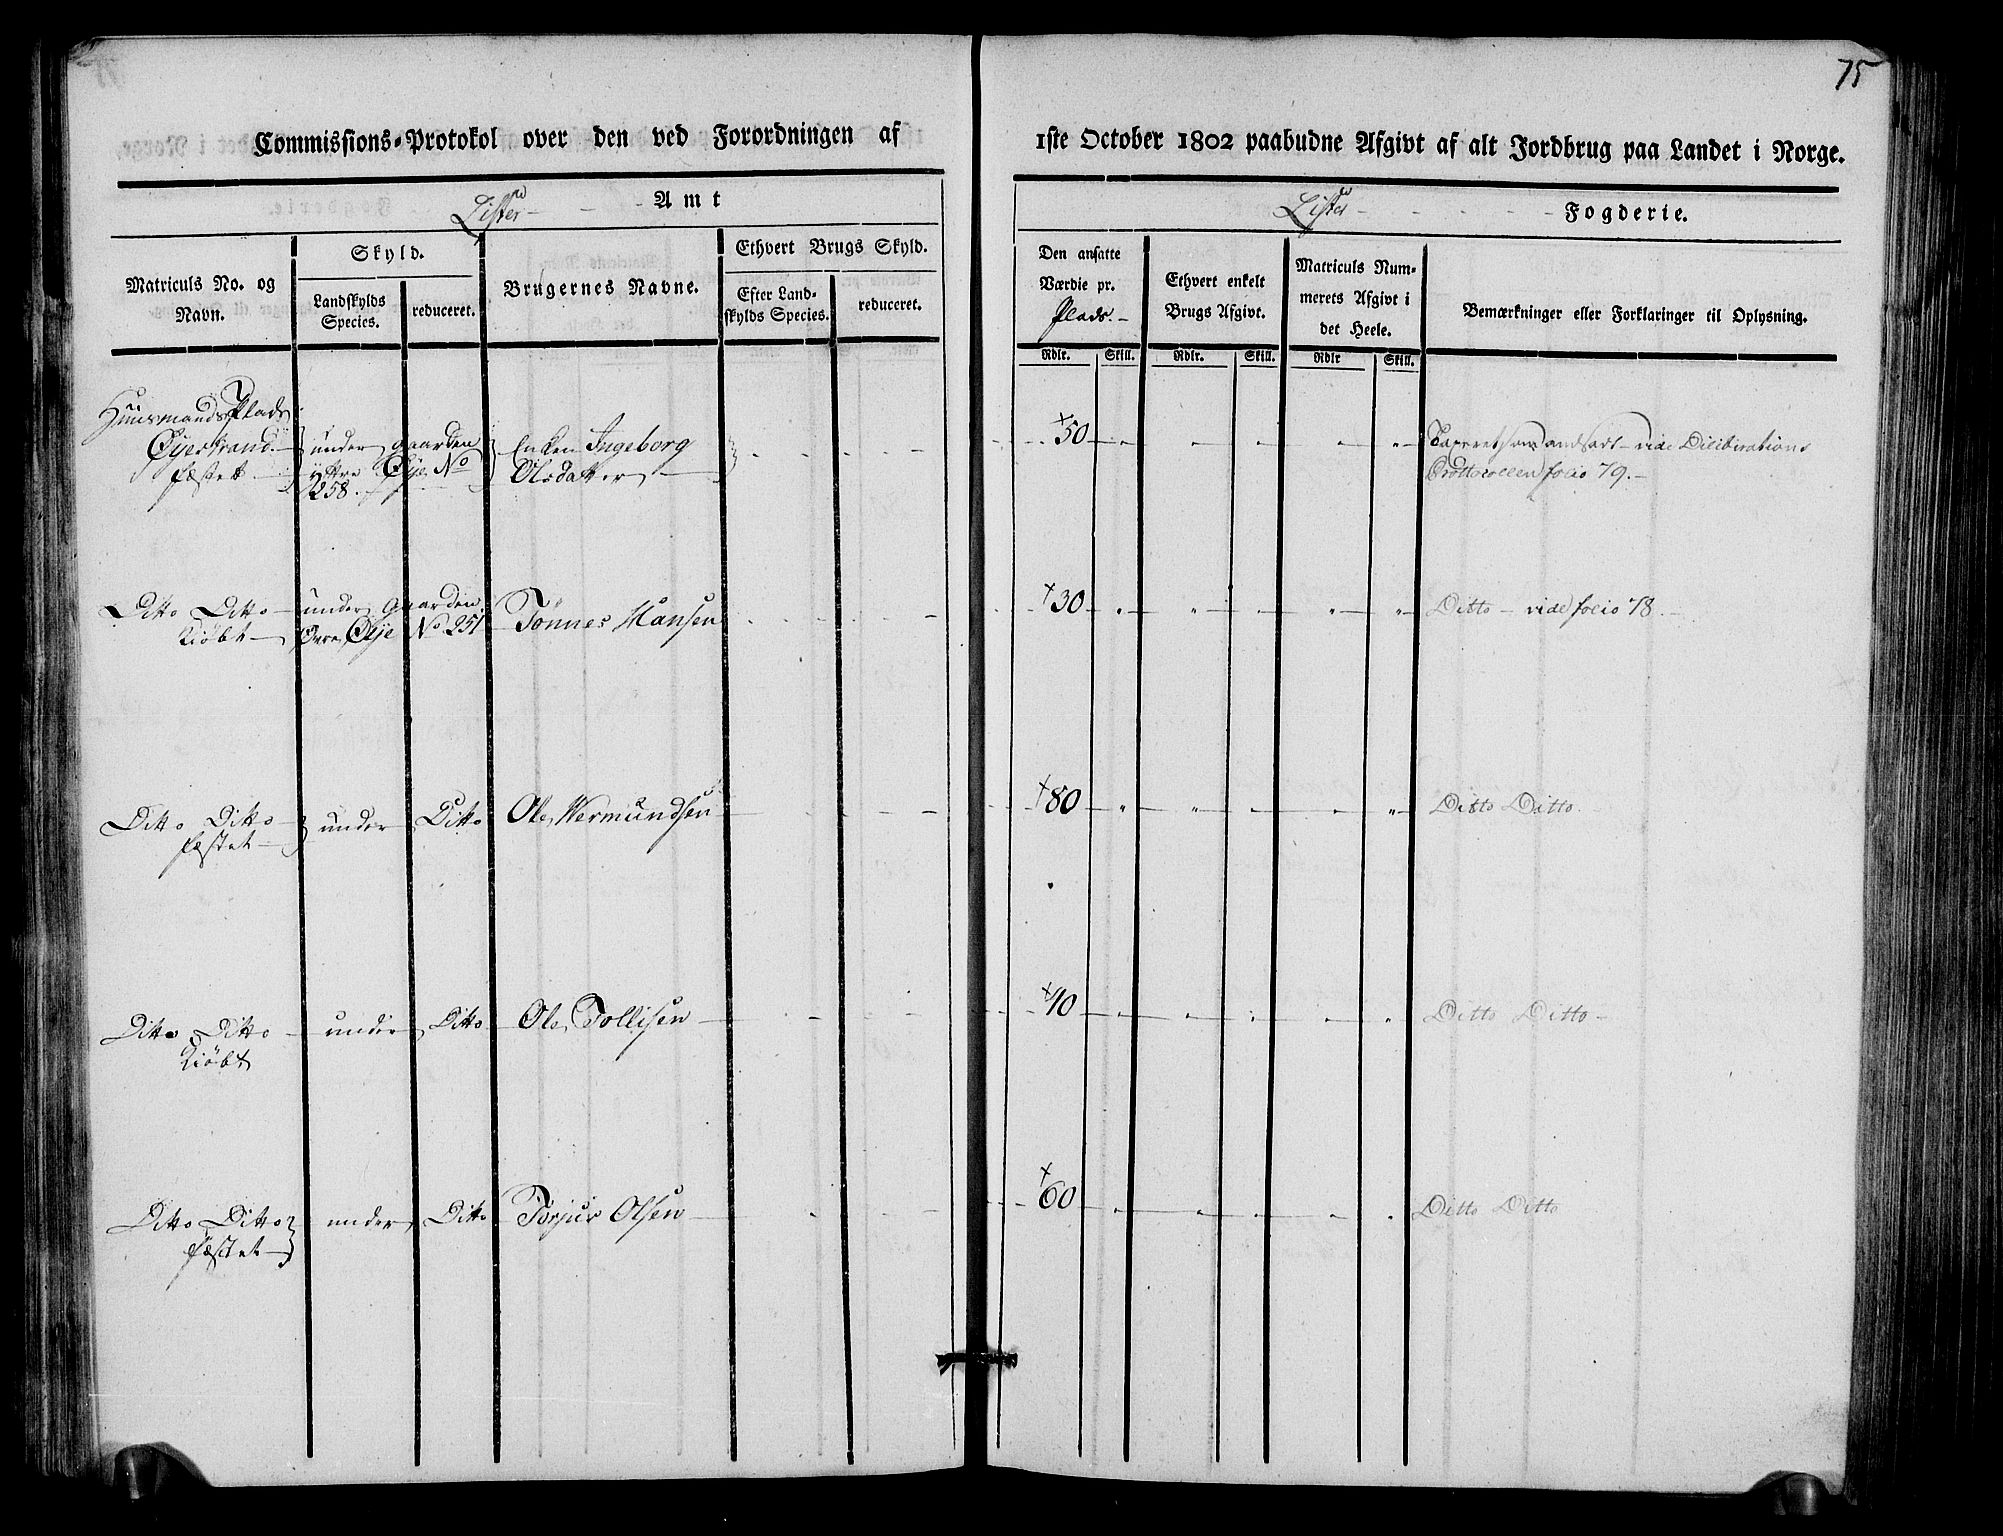 75
Commissions-Protokol over den ved Forordningen af 1ste October 1802 paabudne Afgivt af alt Jordbrug paa Landet i Norge.
Lister Amt
Lister Fogderie.
Matriculs No. og Navn.
Skyld.
Landskylds Species.
reduceret.
Brugernes Navne.
Ethvert Brugs Skyld.
Efter Landskylds Species.
reduceret.
Den ansatte Værdie pr. Plads.
Ethvert enkelt Brugs Afgivt.
Matriculs Nummerets Afgivt i det Heele.
Bemærkninger eller Forklaringer til Oplysning.
Rdlr. Skill. Rdlr. Skill. Rdlr Skill.
Huusmands Plads
Øyestrand under gaarden Enken Ingeborg 50 andsadt vide Dilibrations
fæstet yttre Øÿe No Olsdatter Prottocollen folio 79.
258.
Ditto Ditto under Gaarden Tönnes Hansen 30 Ditto vide folio 78.
Kiöbt Övre Øÿe No 251
Ditto Ditto under Ditto Ole Wermundsen 80 Ditto Ditto
fæstet
Ditto Ditto under Ditto Ole Tollisen 40 Ditto Ditto
Kiöbt
Ditto Ditto under Ditto Torjur Olsen 60 Ditto Ditto
fæstet